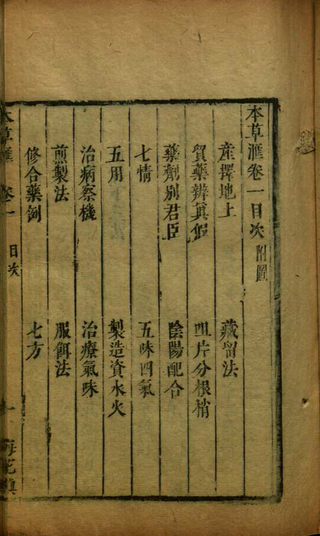 本草滙卷一目次 附圖
産擇地土 藏留法
貿藥辨眞假 咀片分根梢
藥劑别君臣 陰陽配合
七情 五味四氣
五用 製造資水火
治病察機 治療氣味
煎製法 服餌法
修合藥例 七方
本草滙 卷一 目次 一